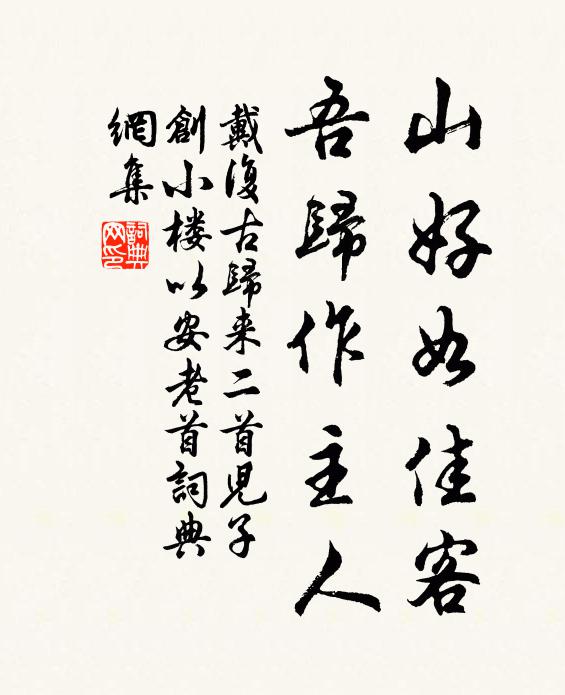 山好如佳客
吾歸作主人
戴復古歸来二首兒子
創小楼以安老首詞典
網集
詞典
网印